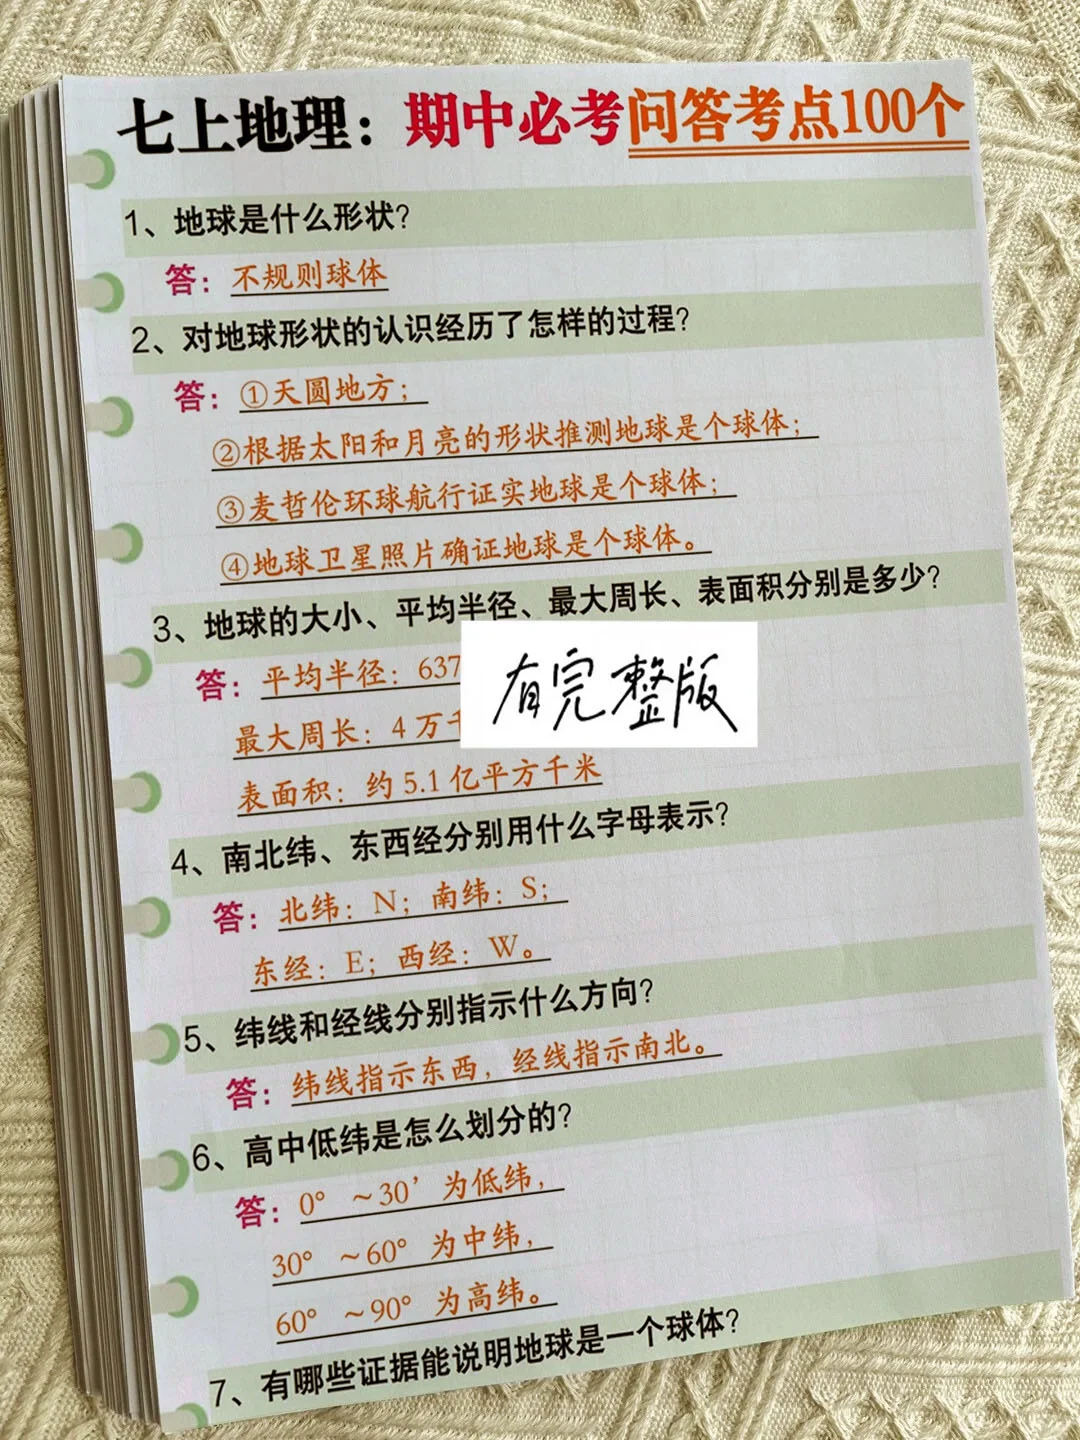 七上地理：期中必考问答考点100个
1、地球是什么形状？
答：不规则球体
2、对地球形状的认识经历了怎样的过程？
答：①天圆地方；
②根据太阳和月亮的形状推测地球是个球体；
③麦哲伦环球航行证实地球是个球体；
④地球卫星照片确证地球是个球体。
3、地球的大小、平均半径、最大周长、表面积分别是多少？
答：平均半径：637
有完整版
最大周长：4万
表面积：约5.1亿平方千米
4、南北纬、东西经分别用什么字母表示？
答：北纬：N；南纬：S；
东经：E；西经：W。
5、纬线和经线分别指示什么方向？
答：纬线指示东西，经线指示南北。
6、高中低纬是怎么划分的？
答：0° ~30′ 为低纬，
30° ~60° 为中纬，
60° ~90° 为高纬。
7、有哪些证据能说明地球是一个球体？